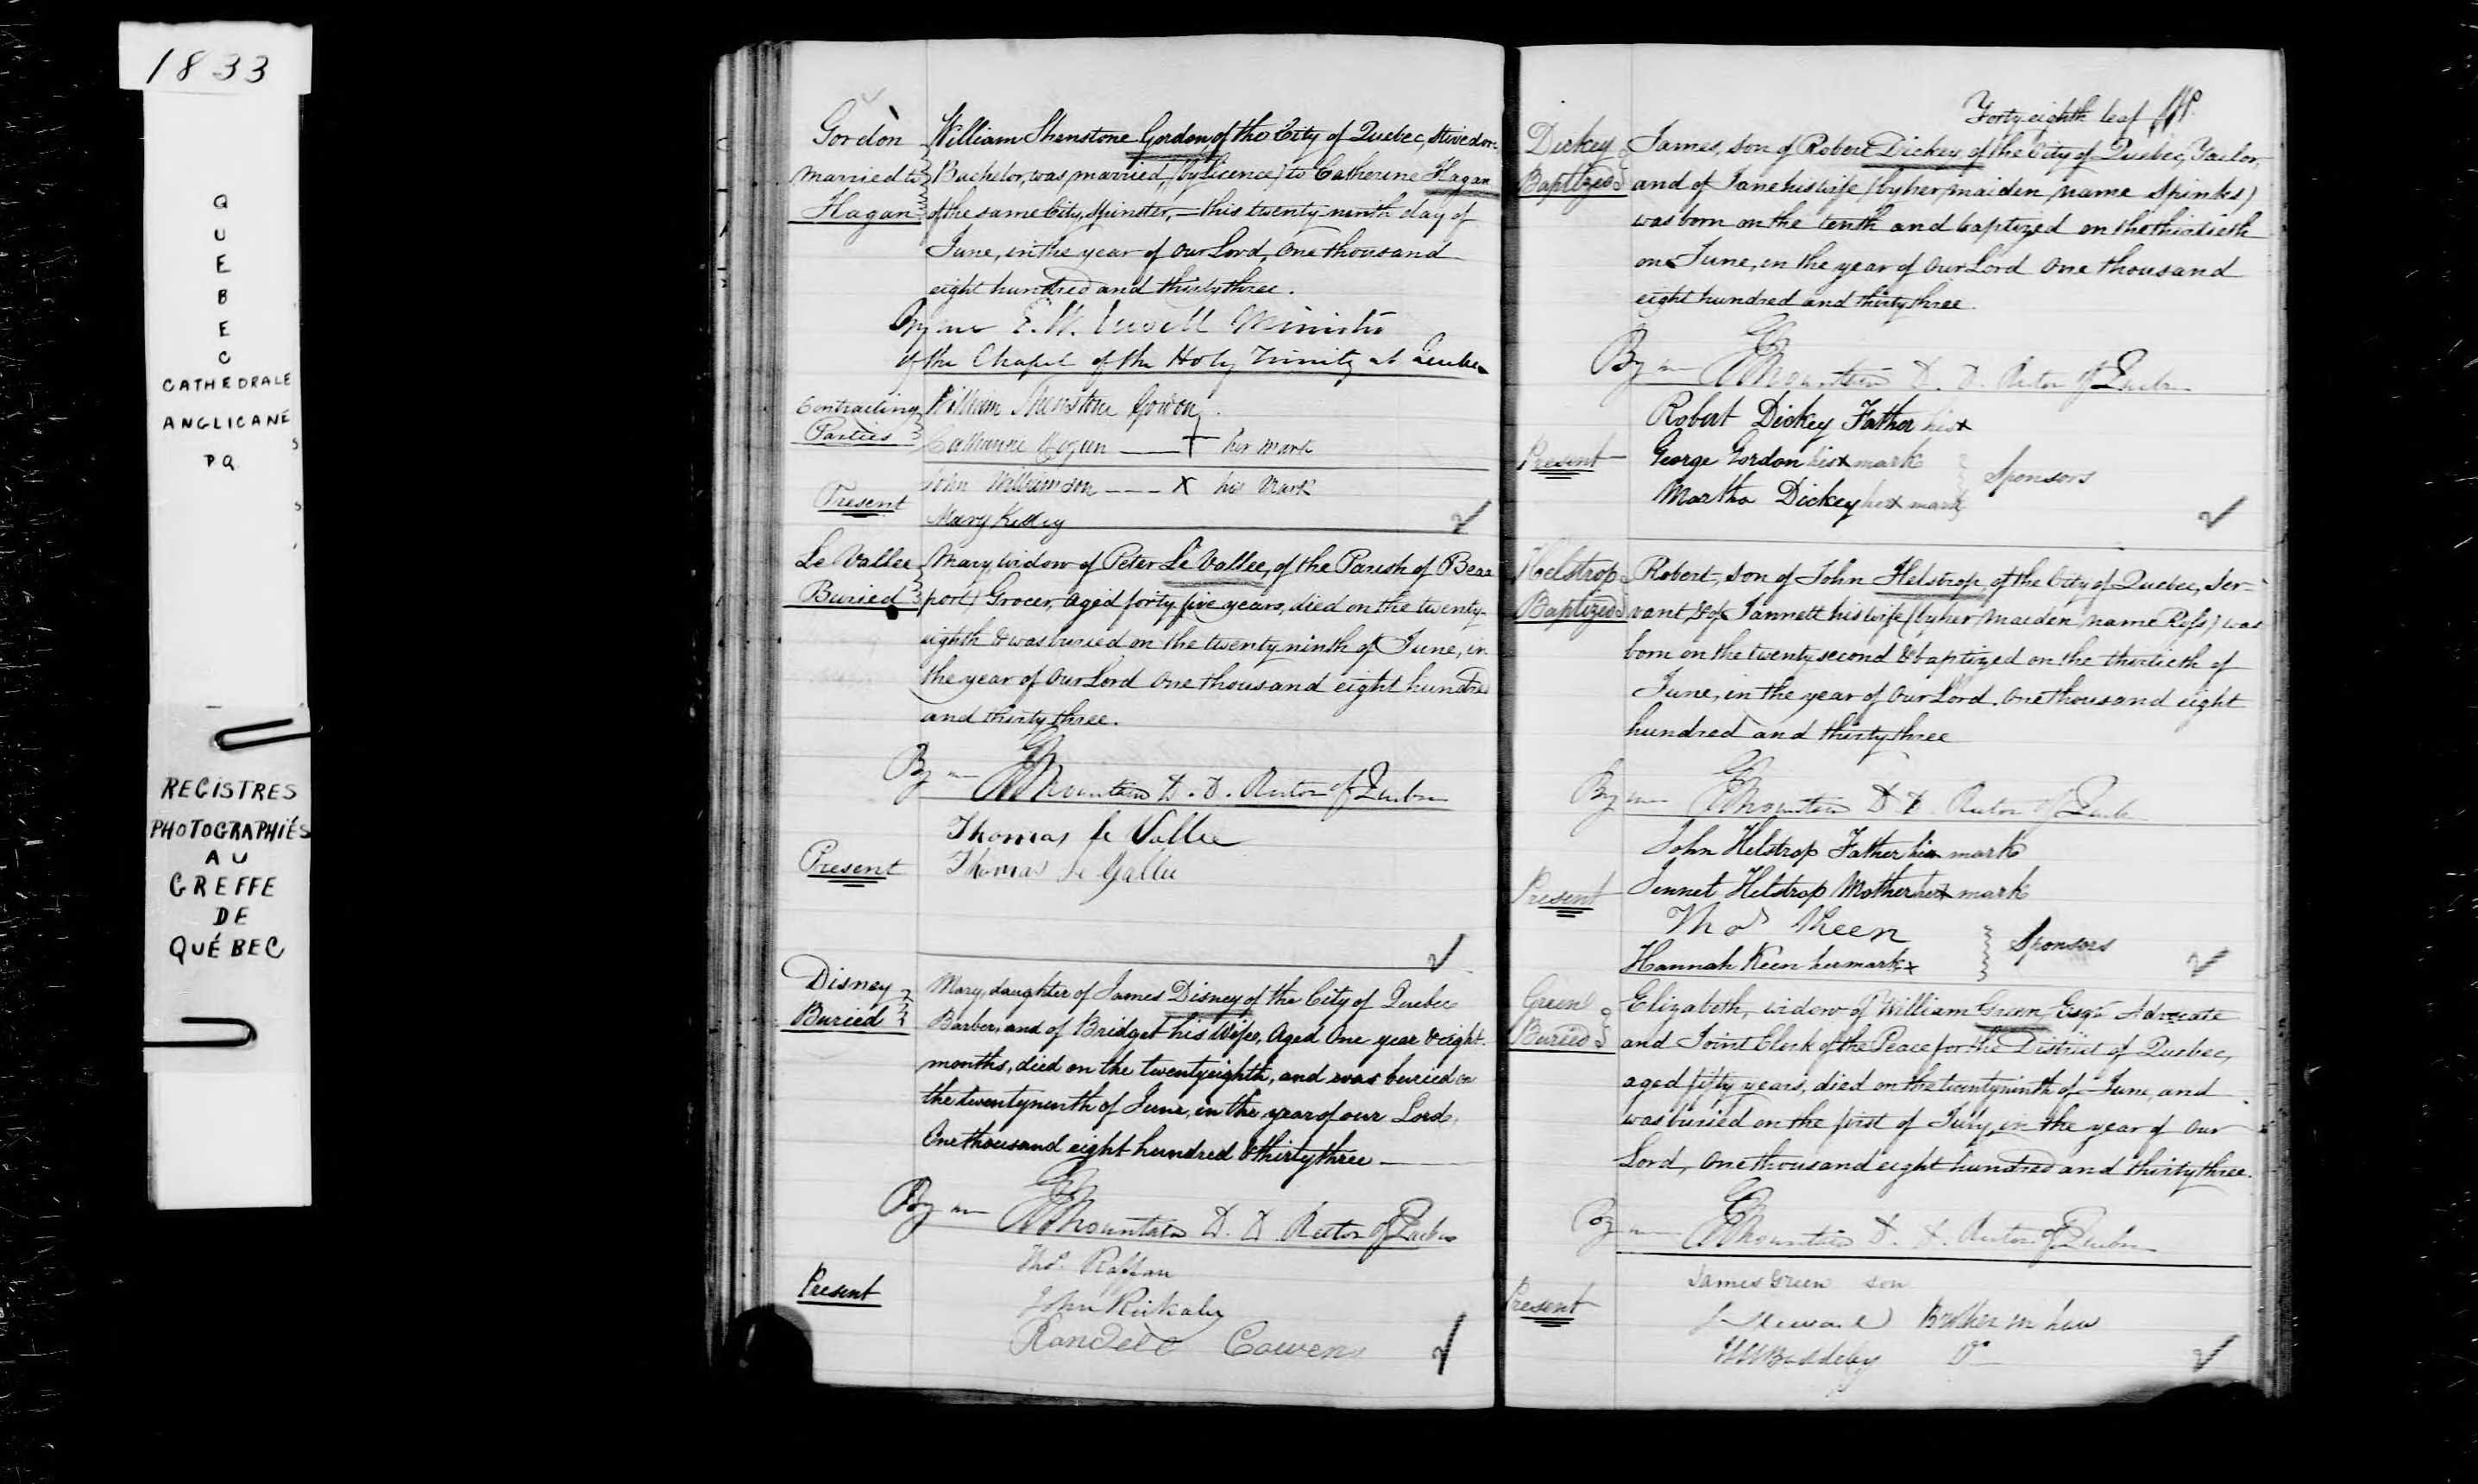 1833
QUEBEC
CATHEDRALE
ANGLICANE
P.Q.
REGISTRES
PHOTOGRAPHIÉS
AU
GREFFE
DE
QUÉBEC
Gordon
married to
Hagan
William Shenstone Gordon, of the City of Quebec, Stivedore,
Bachelor, was married, (by Licence) to Catherine Hagan
of the same City, Spinster, — this twenty ninth day of
June, in the year of our Lord, One thousand
eight hundred and thirty three.
By me E. W. Sewell Minister
of the Chapel of the Holy Trinity at Quebec
Contracting
Parties
William Shenstone Gordon
Catharine Hagan + her mark
Present
John Williamson x his Mark
Mary Kelley
Le Vallee
Buried
Mary widow of Peter Le Vallee, of the Parish of Beau
port, Grocer, aged forty five years, died on the twenty-
eighth & was buried on the twenty ninth of June, in
the year of our Lord One thousand eight hundred
and thirty three.
By me G J Mountain D. D. Rector of Quebec
Present
Thomas Le Vallee
Thomas Le Vallee
Disney
Buried
Mary, daughter of James Disney of the City of Quebec
Barber, and of Bridget his Wife, Aged One year & eight
months, died on the twentyeighth, and was buried on
the twentyninth of June, in the year of our Lord,
One thousand eight hundred & thirty three —
By me G J Mountain D. D. Rector of Quebec
Present
Thos.
John
Cowen
Forty eighth leaf
Dickey
Baptized
James, son of Robert Dickey, of the City of Quebec, Taylor,
and of Jane his wife (by her maiden name Spinks)
was born on the tenth and baptized on the thirtieth
on June, in the year of our Lord One thousand
eight hundred and thirty three.
By me G J Mountain D. D. Rector of Quebec
Present
Robert Dickey Father his x
George Gordon his x mark
Martha Dickey her x mark
Sponsors
Helstrop
Baptized
Robert, son of John Helstrop, of the City of Quebec, Ser-
vant, & of Jannett his wife (by her maiden name Ross) was
born on the twenty second & baptized on the thirtieth of
June, in the year of our Lord One thousand eight
hundred and thirty three
By me G J Mountain D. D. Rector of Quebec
Present
John Helstrop Father his x mark
Jennet Helstrop Mother her x mark
Thos Keen
Hannah Keen her mark x
Sponsors
Green
Buried
Elizabeth, widow of William Green, Esqr. Advocate
and Joint Clerk of the Peace for the District of Quebec,
aged fifty years, died on the twentyninth of June, and
was buried on the first of July, in the year of our
Lord, One thousand eight hundred and thirty three.
By me G J Mountain D. D. Rector of Quebec
Present
James Green son
Brother in law
Do